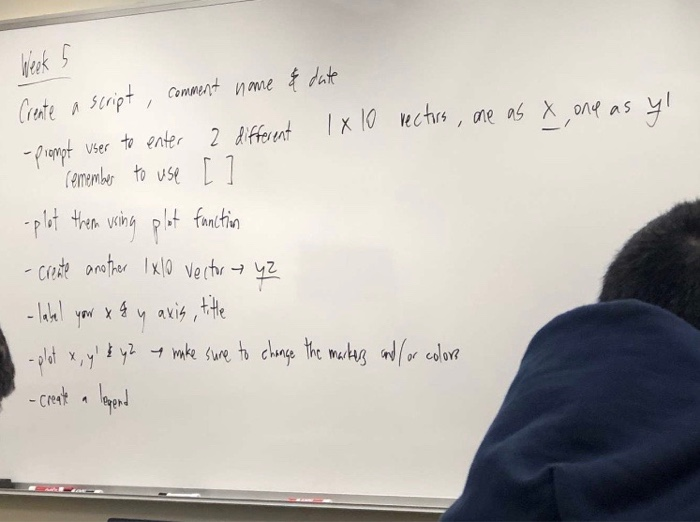 Week 5
Create a script, comment name & date
- prompt user to enter 2 different 1 x 10 vectors, one as x, one as y1
remember to use [ ]
- plot them using plot function
- create another 1x10 vector → y2
- label your x & y axis, title
- plot x, y1 & y2 → make sure to change the markers and/or colors
- create a legend